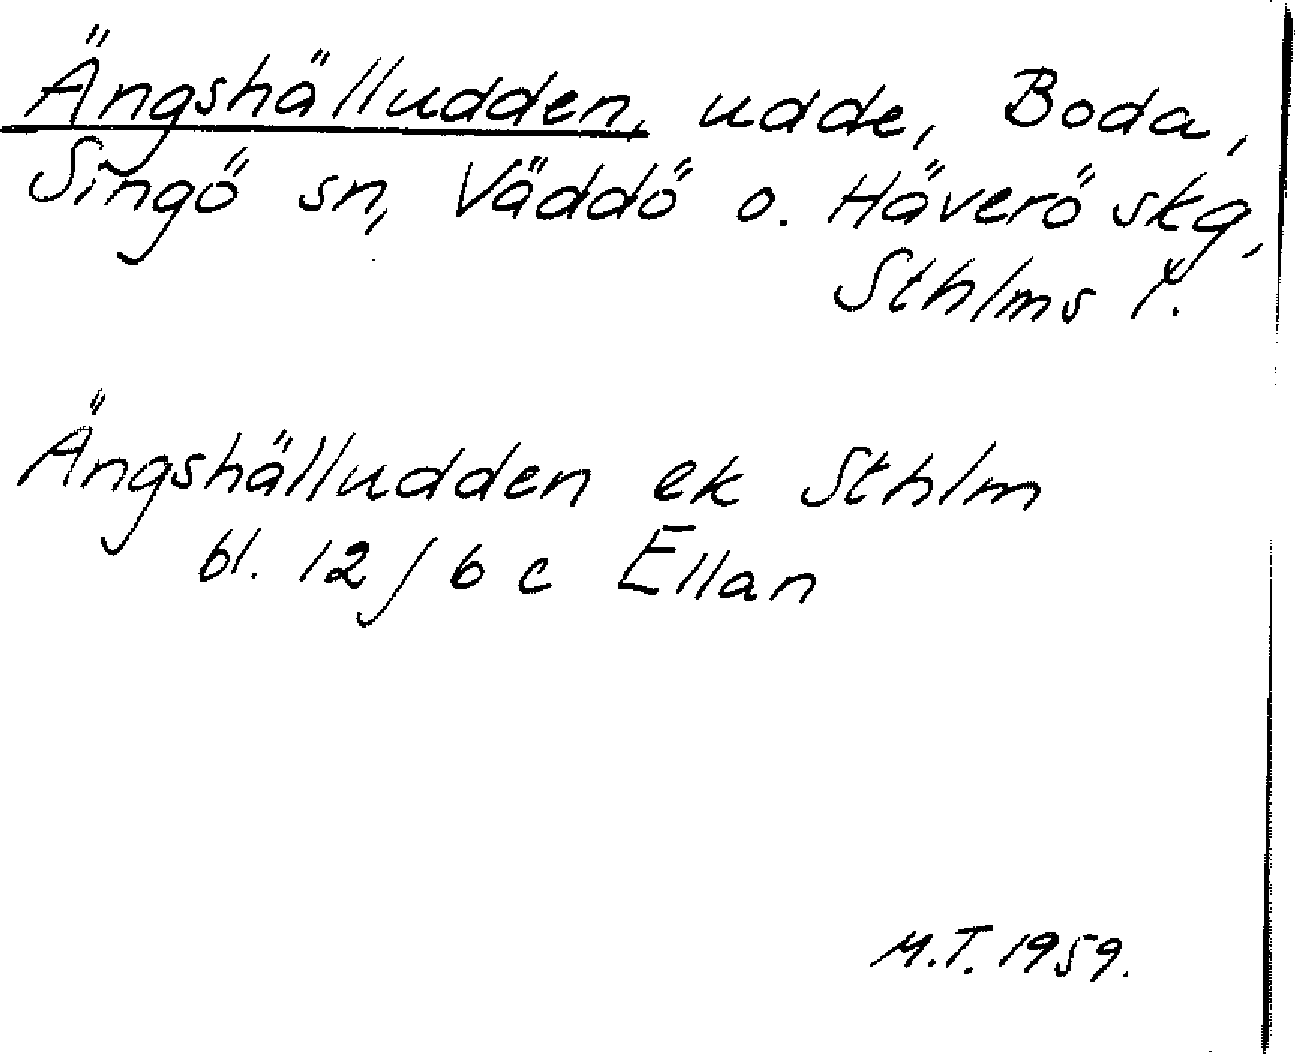 Ängshälludden, udde, Boda,
Singö sn, Väddö o. Häverö skg,
Sthlms l.
Ängshälludden ek Sthlm
bl. 12/6 c Ellan
M.T. 1959.